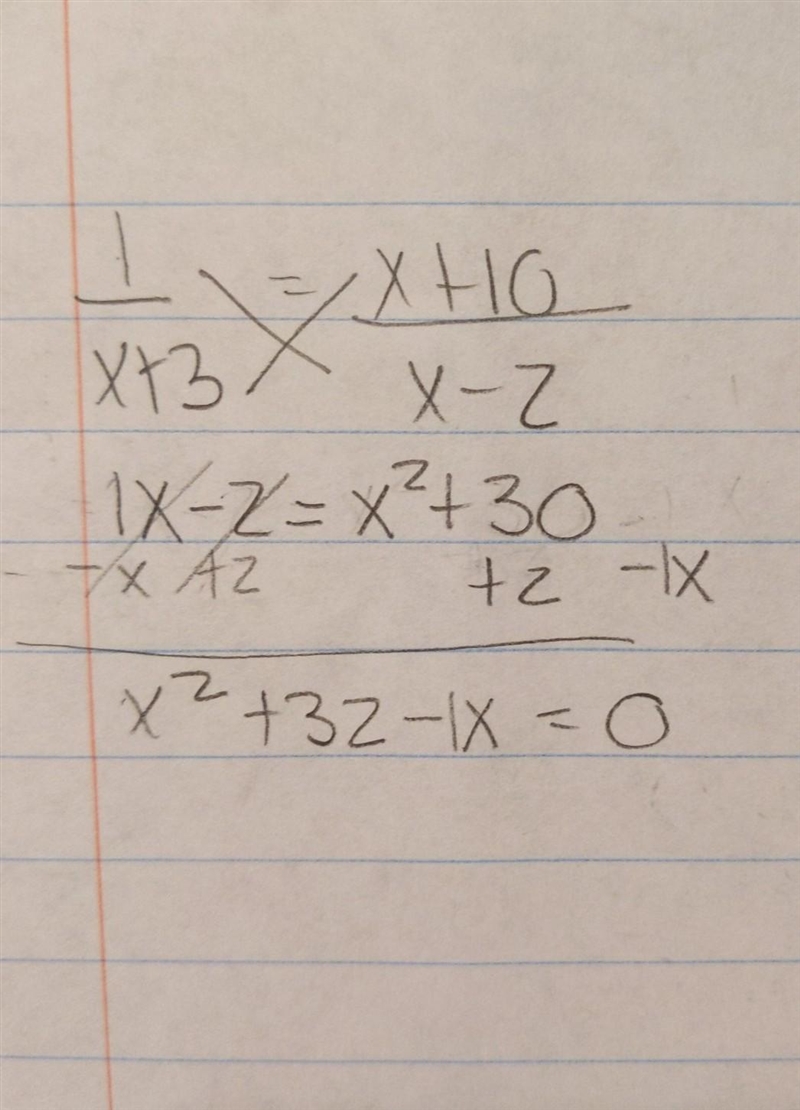 1 = x+10
x+3 x-2
1x-2 = x²+30
-x +2 +2 -1x
x²+32-1x = 0